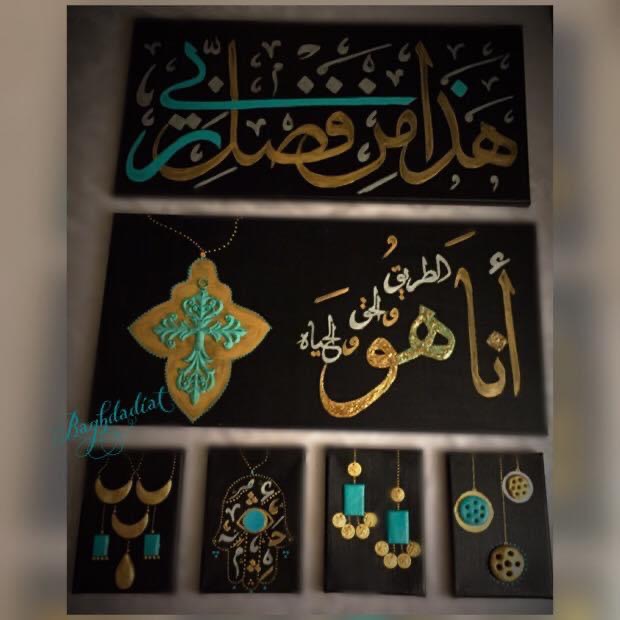 هَذَا مِنْ فَضْلِ رَبِّي
أنا هُوَ
الطريق
والحق
والحياة
Baghdadiat